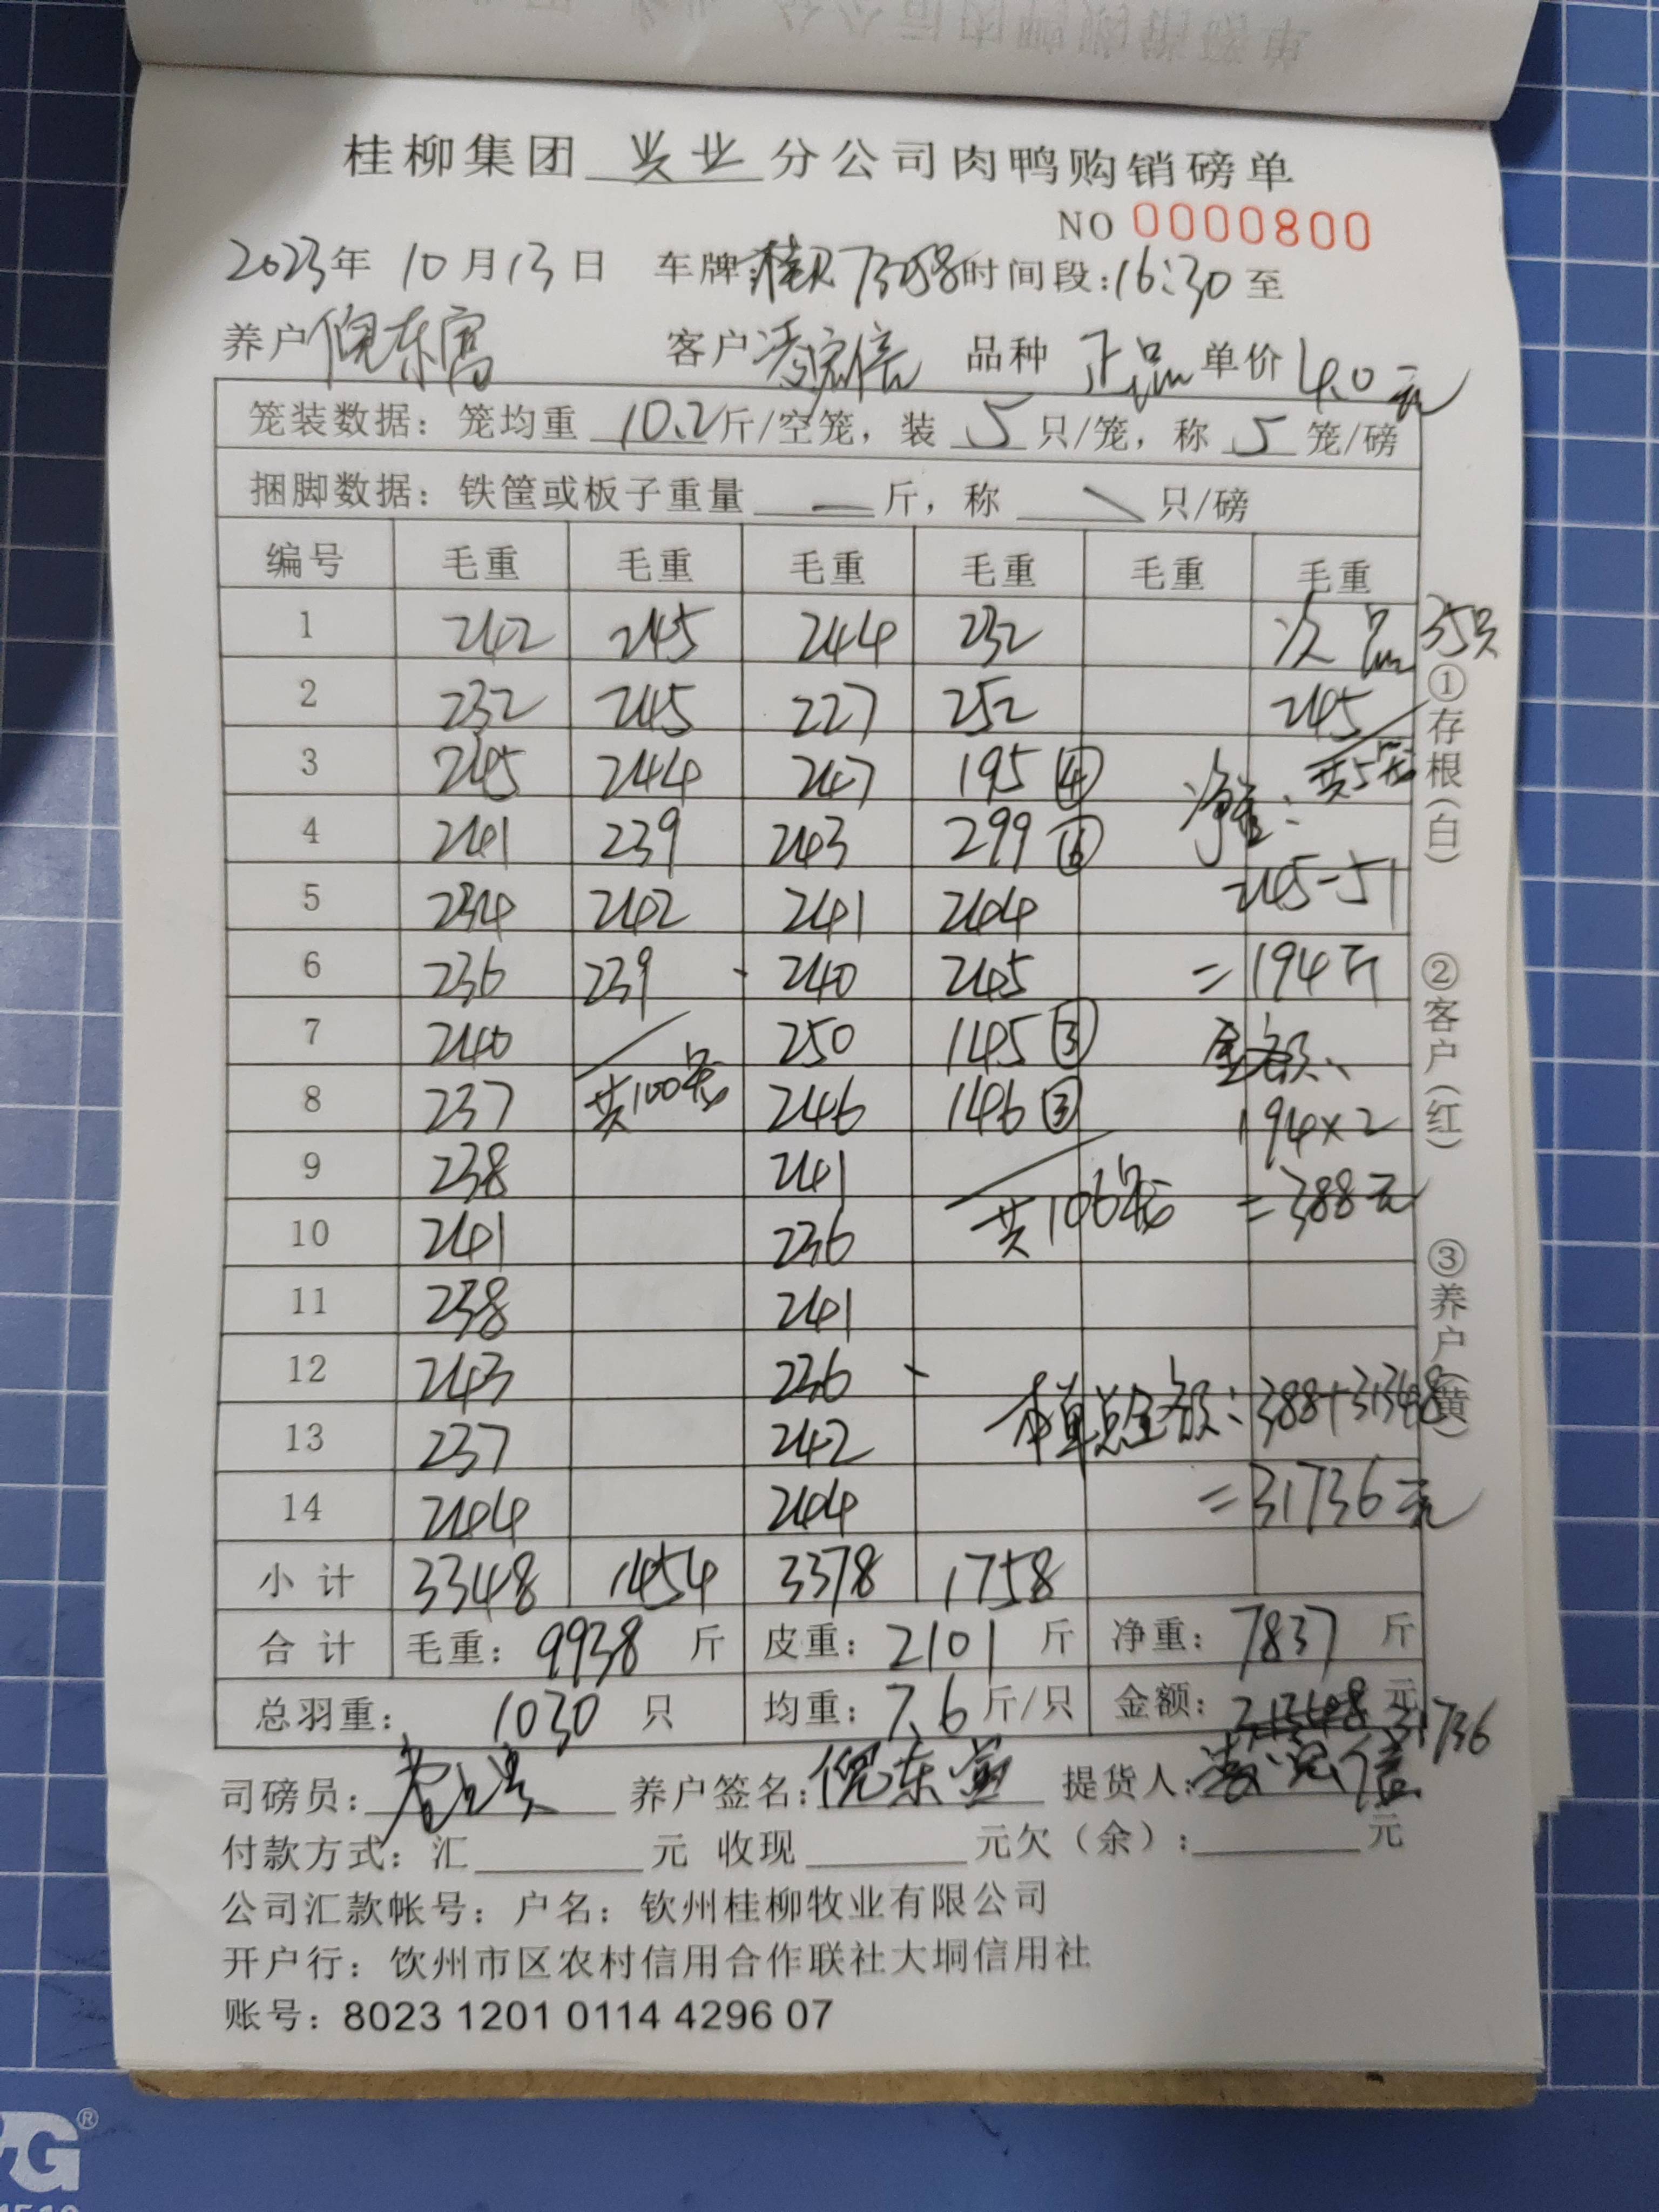 桂柳集团 兴业 分公司肉鸭购销磅单
NO 0000800
2023年 10月13日 车牌:桂 73058 时间段:16:30至
养户 倪东富 客户 品种 正品 单价 4.0元
笼装数据: 笼均重 10.2 斤/空笼, 装 5 只/笼, 称 5 笼/磅
捆脚数据: 铁筐或板子重量 — 斤, 称 \ 只/磅
编号 毛重 毛重 毛重 毛重 毛重 毛重
1 242 245 244 232 次品 35只
2 232 245 227 252 245
3 245 244 247 195 ④ 共5笼
4 241 239 243 299 ⑥ 净重:
5 234 242 241 244 245-51
6 236 239 240 245 =194斤
7 240 250 145 ③ 金额:
8 237 共100笼 246 146 ③ 194×2
9 238 241 =388元
10 241 236 共106笼
11 238 241
12 243 236 本单总金额:388+31348
13 237 242
14 244 244 =31736元
小计 3348 1454 3378 1758
合计 毛重: 9938 斤 皮重: 2101 斤 净重: 7837 斤
总羽重: 1030 只 均重: 7.6 斤/只 金额: 31348 元 31736
司磅员: 养户签名: 倪东富 提货人:
付款方式: 汇 元 收现 元欠(余): 元
公司汇款帐号: 户名: 钦州桂柳牧业有限公司
开户行: 饮州市区农村信用合作联社大垌信用社
账号: 8023 1201 0114 4296 07
①存根(白)
②客户(红)
③养户(黄)